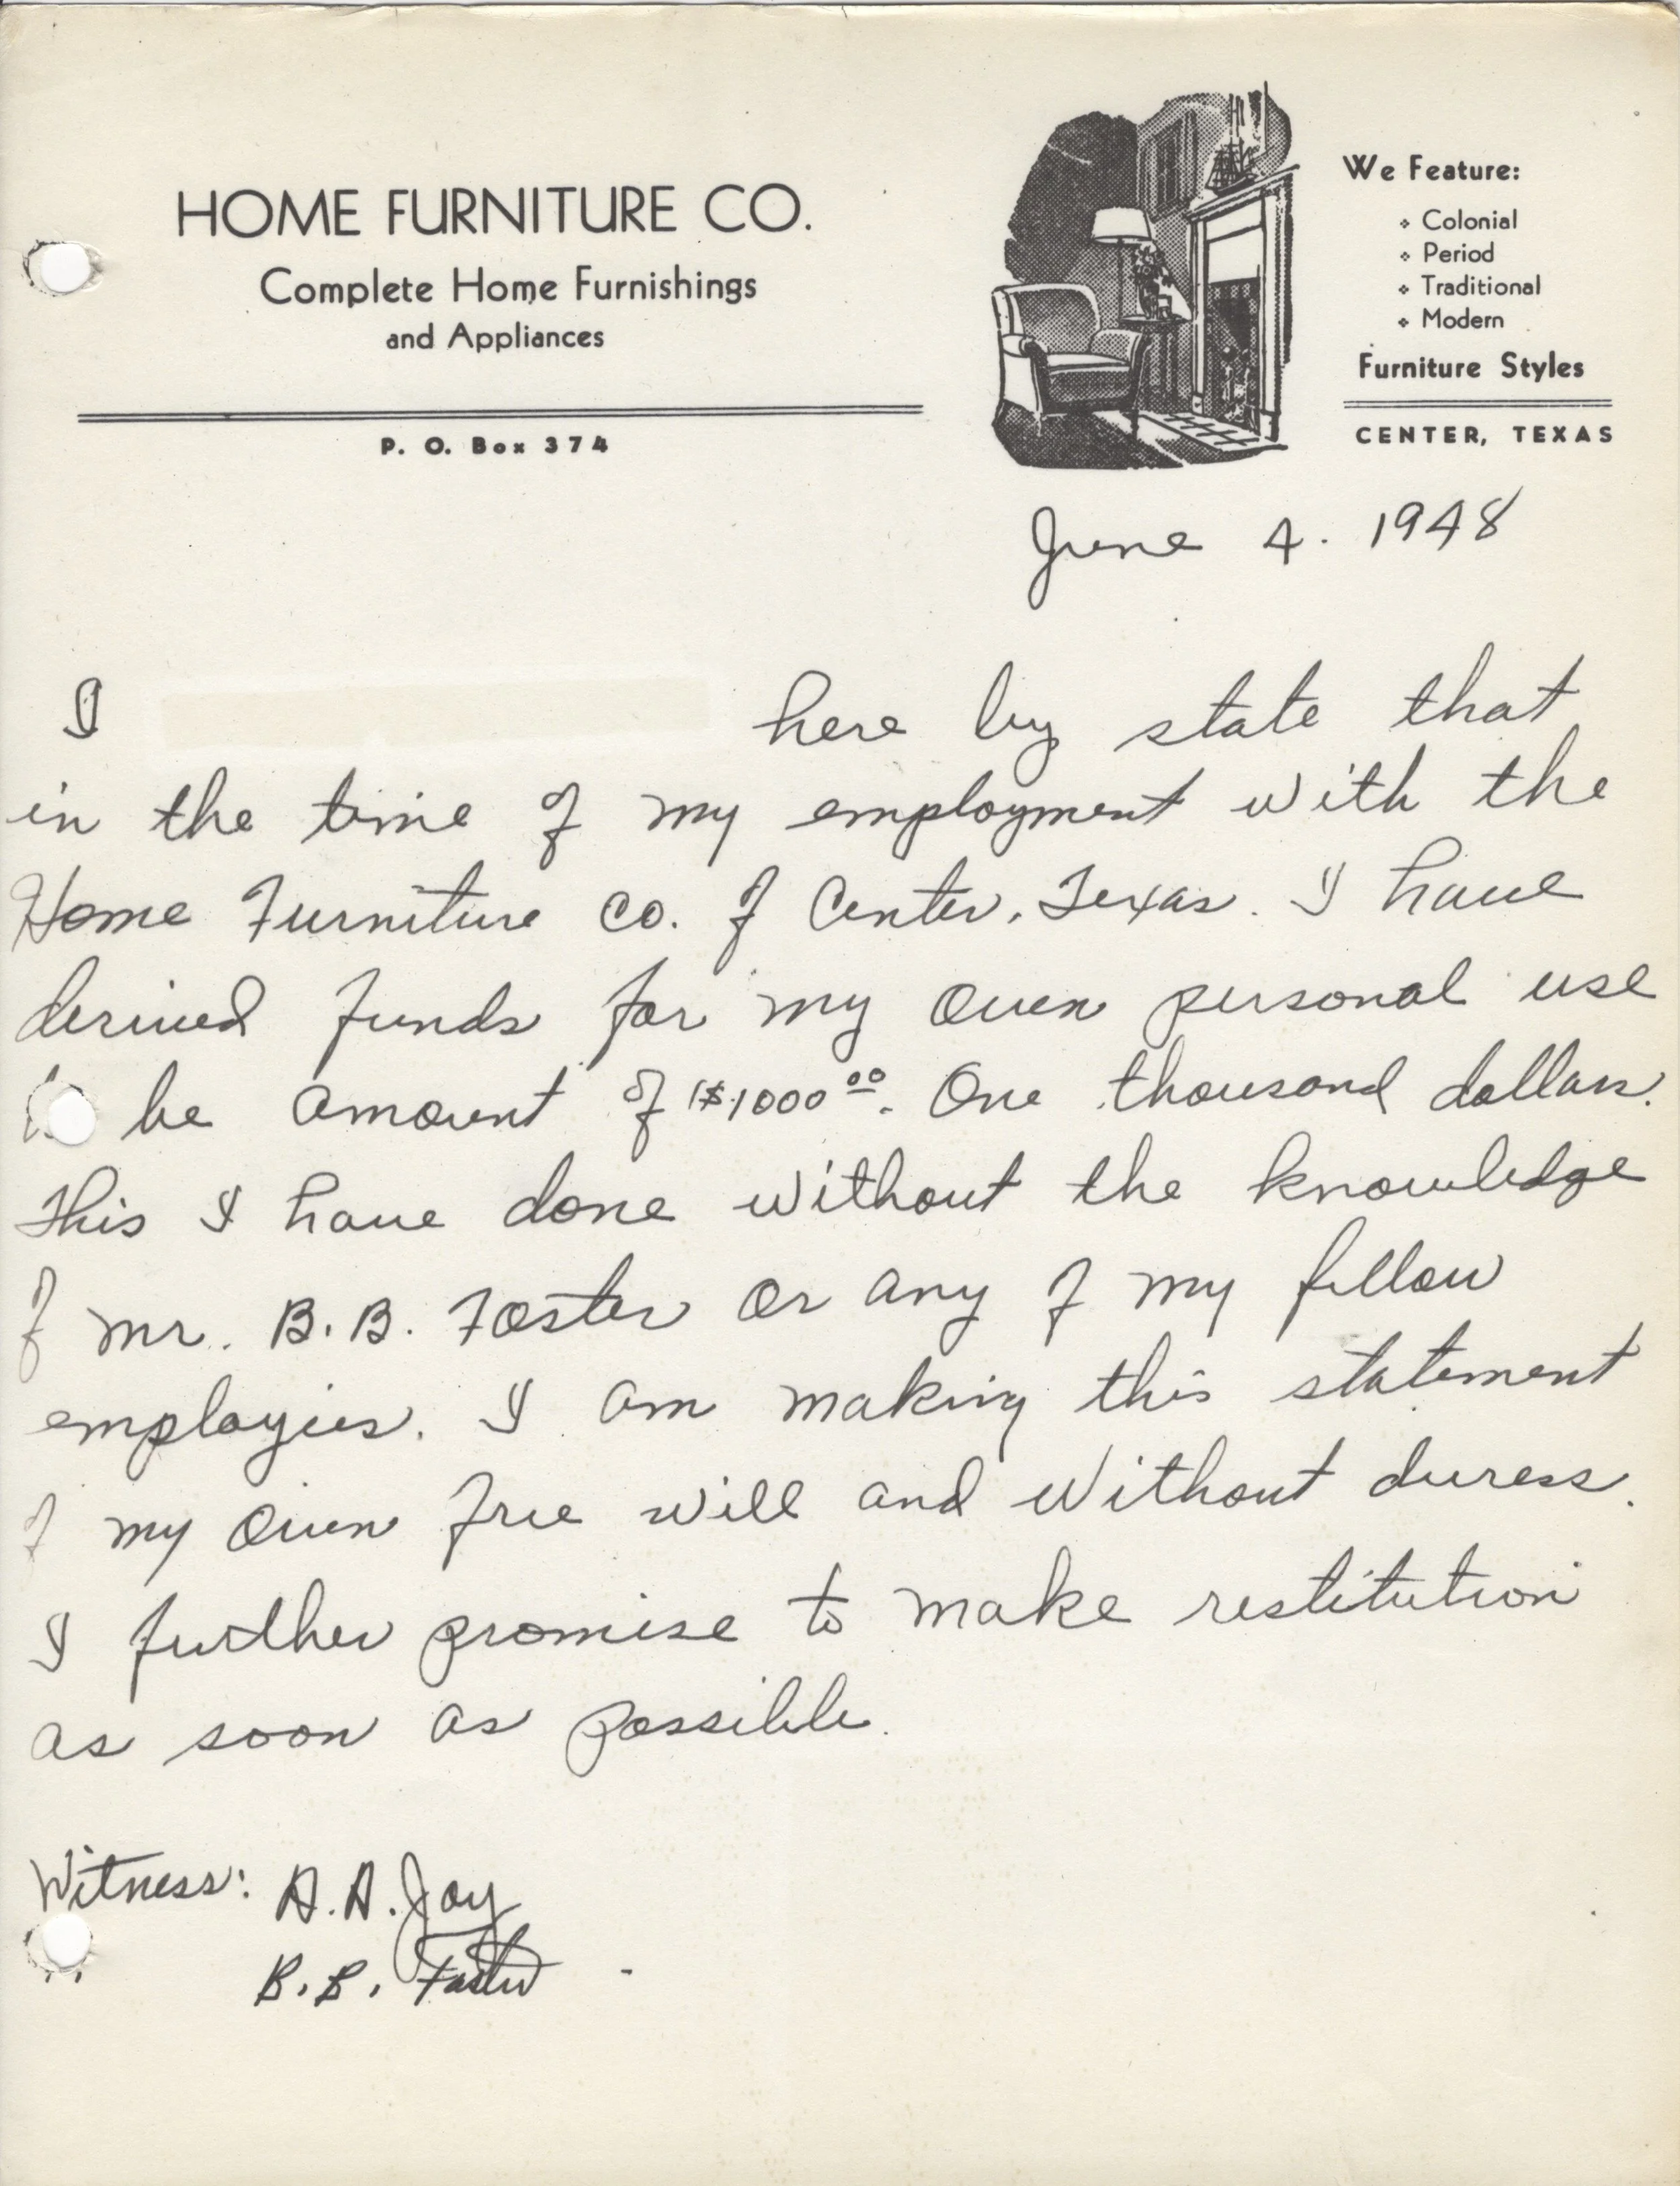 HOME FURNITURE CO.
Complete Home Furnishings
and Appliances
P. O. Box 374
We Feature:
Colonial
Period
Traditional
Modern
Furniture Styles
CENTER, TEXAS
June 4. 1948
I here by state that
in the time of my employment with the
Home Furniture Co. of Center, Texas. I have
derived funds for my own personal use
to be amount of $1000 00. One thousand dollars.
This I have done without the knowledge
of Mr. B.B. Foster or any of my fellow
employies. I am making this statement
of my own free will and without duress.
I further promise to make restitution
as soon as possible.
Witness: A.A. Joy
B.B. Foster